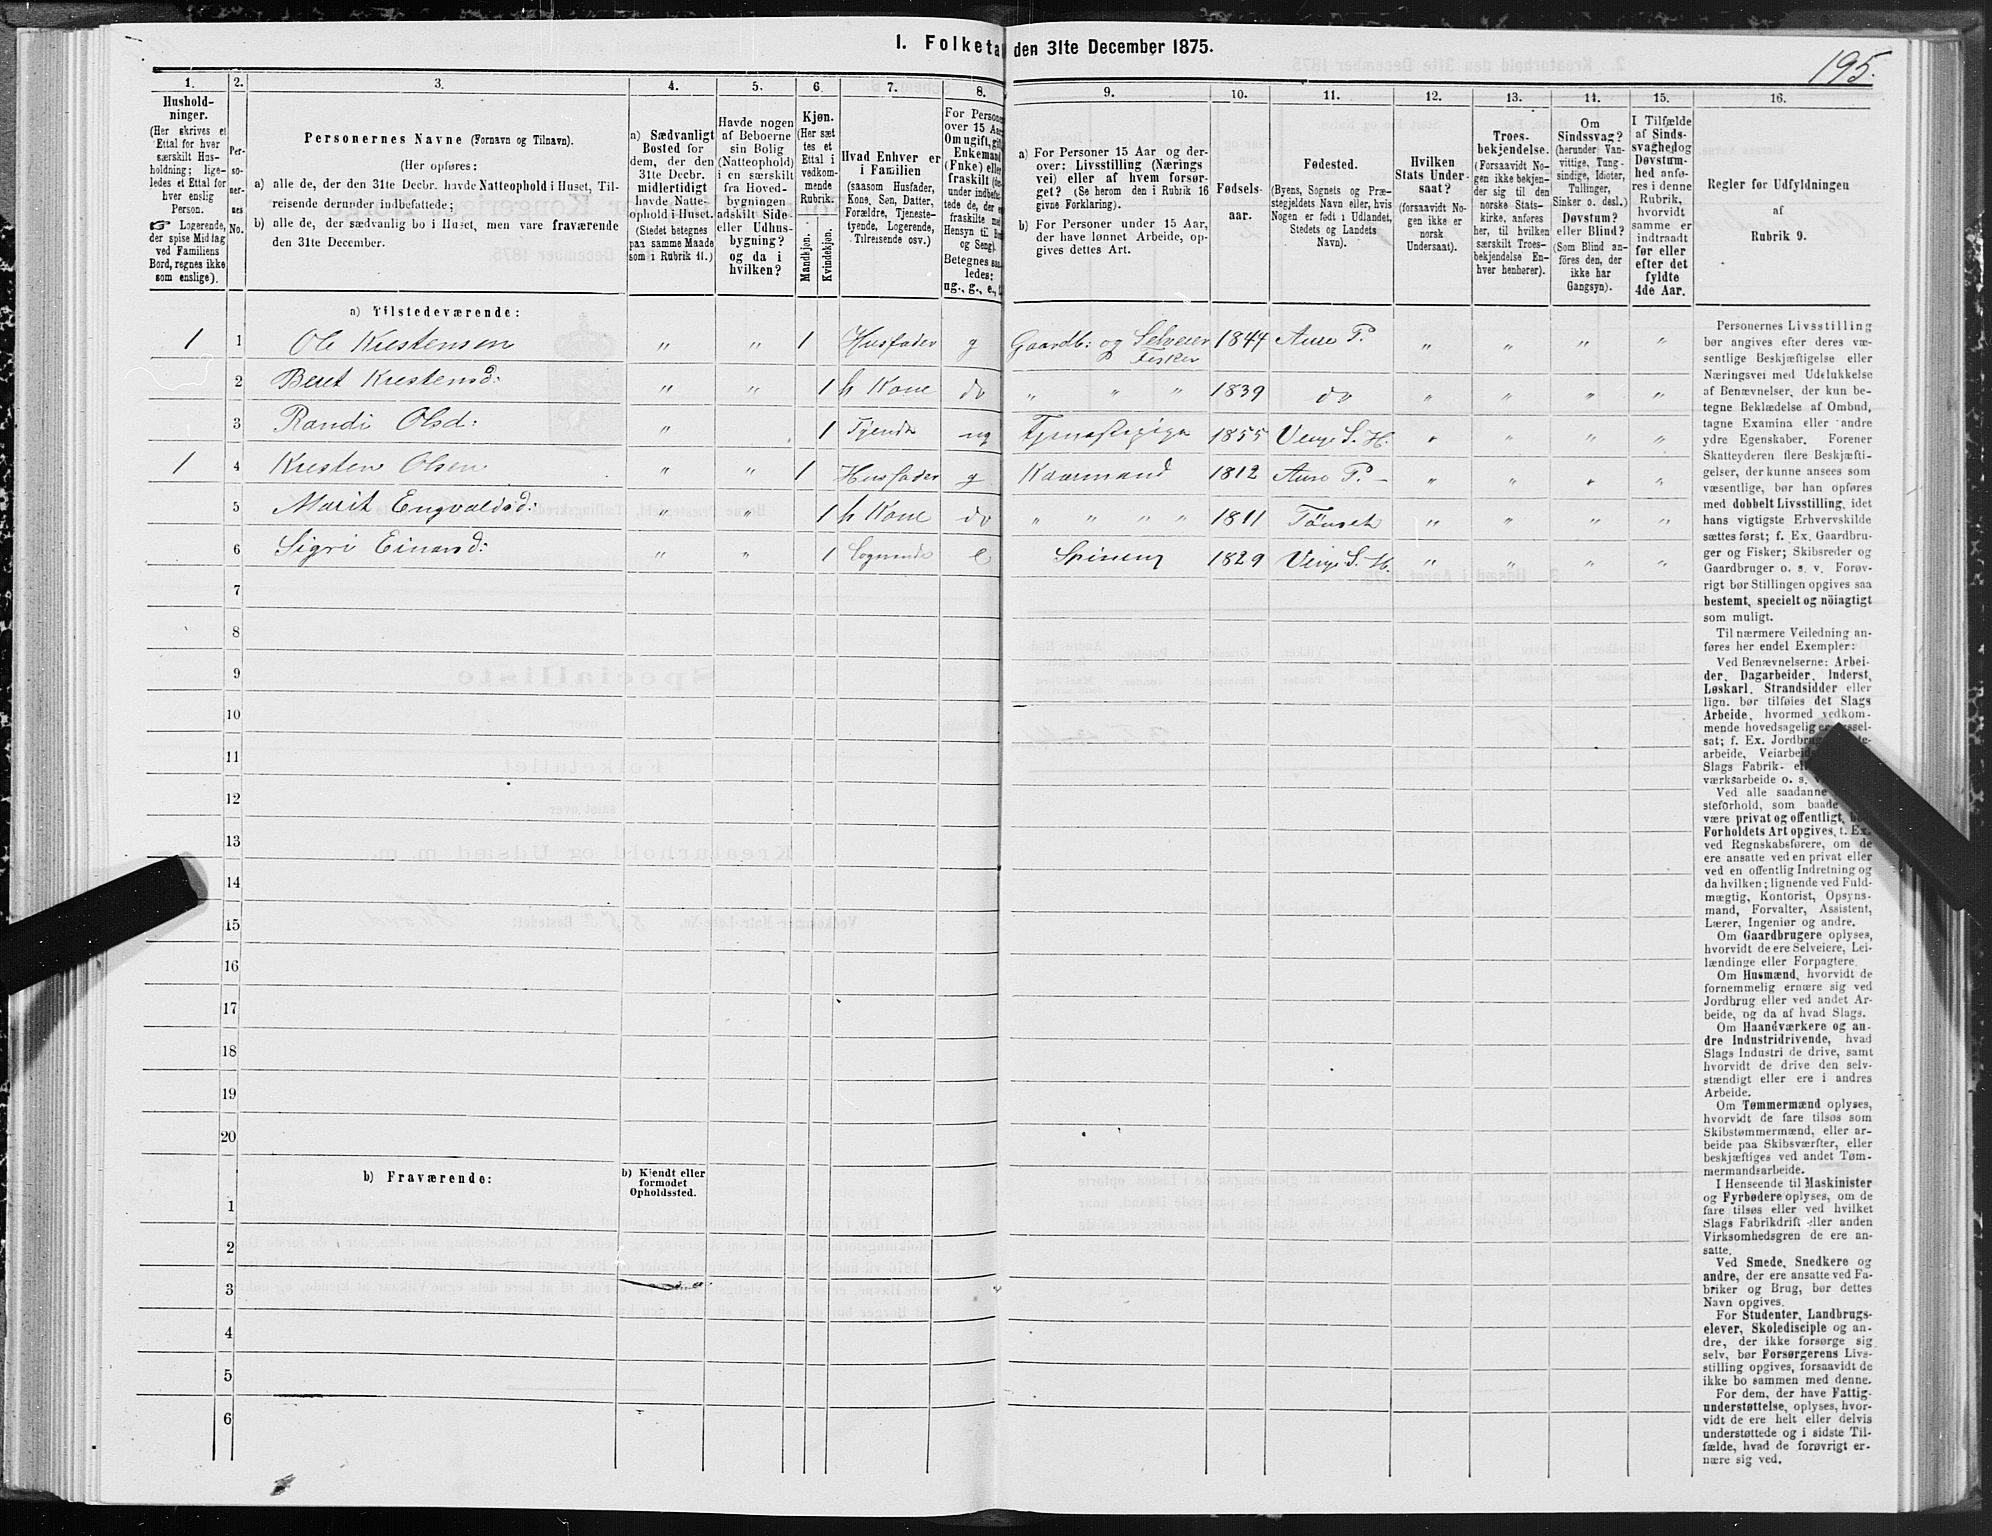 195.
I. Folketa den 31te December 1875.
1. 2. 3. 4. 5. 6. 7. 8. 9. 10. 11. 12. 13. 14. 15. 16.
Hushold-
ninger.
(Her skrives et
Ettal for hver
særskilt Hus-
holdning; lige-
ledes et Ettal for
hver enslig
Person.
Logerende,
der spise Middag
ved Familiens
Bord, regnes ikke
som enslige).
Per-
so-
ner-
nes
No.
Personernes Navne (Fornavn og Tilnavn).
(Her opføres:
a) alle de, der den 31te Decbr. havde Natteophold i Huset, Til-
reisende derunder indbefattede;
b) alle de, der sædvanlig bo i Huset, men vare fraværende
den 31te December.
a) Sædvanligt
Bosted for
dem, der den
31te Decbr.
midlertidigt
havde Natte-
ophold i Huset.
(Stedet betegnes
paa samme Maade
som i Rubrik 11.)
Havde nogen
af Beboerne
sin Bolig
(Natteophold)
i en særskilt
fra Hoved-
bygningen
adskilt Side-
eller Udhus-
bygning?
og da i
hvilken?
Kjøn.
(Her sæt
tes et
Ettal i
vedkom-
mende
Rubrik.
Mandkjøn.
Kvindekjøn.
Hvad Enhver er
i Familien
(saasom Husfader,
Kone, Søn, Datter,
Forældre, Tjeneste-
tyende, Logerende,
Tilreisende osv.)
For Persone
over 15 Aa
Om ugift, gif
Enkemand
(Enke) elle
fraskilt (de
under indbefat
tede de, der e
fraskilte me
Hensyn til B
og Seng).
Betegnes saa
ledes:
ug., g., e.,
a) For Personer 15 Aar og der-
over: Livsstilling (Nærings
vei) eller af hvem forsør-
get? (Se herom den i Rubrik 16
givne Forklaring).
b) For Personer under 15 Aar,
der have lønnet Arbeide, op-
gives dettes Art.
Fødsels-
aar.
Fødested.
(Byens, Sognets og Præ-
stegjeldets Navn eller, hvis
Nogen er født i Udlandet,
Stedets og Landets
Navn).
Hvilken
Stats Under-
saat?
(forsaavidt No-
gen ikke er
norsk
Undersaat).
Troes-
bekjendelse.
(Forsaavidt No-
gen ikke bekjen-
der sig til den
norske Stats-
kirke, anføres
her, til hvilken
særskilt Troes-
bekjendelse En-
hver henhører).
Om
Sindssvag?
(herunder Van-
vittige, Tung-
sindige, Idioter,
Tullinger,
Sinker o. desl.)
Døvstum?
eller Blind?
(Som Blind an-
føres den, der
ikke har
Gangsyn).
I Tilfælde
af Sinds-
svaghed og
Døvstum-
hed anfø-
res i denne
Rubrik,
hvorvidt
samme er
indtraadt
før eller
efter det
fyldte
4de Aar.
Regler for Udfyldningen
af
Rubrik 9.
a) Tilstedeværende:
1 1 Ole Krestensen " " 1 Husfader g Gaardb: og Selveier 1844 Aure P. " " " "
Fisker
2 Beret Krestensd: " " 1 h Kone do " " " 1839 do " " " "
3 Randi Olsd: " 1 Tjende ug 1855 S. H. " " " "
1 4 Kresten Olsen " " 1 Husfader g Kaarmand 1812 Aure P. " " " "
5 Marit Engvaldsd: " " 1 h Kone do " " " " 1811 " " " "
6 Sigri Einarsd: " " 1 e 1829 S. H. " " " "
7
8
9
10
11
12
13
14
15
16
17
18
19
20
b) Fraværende:
b) Kjendt eller
formodet
Opholdssted.
1
2
3
4
5
6
Personernes Livsstilling
bør angives efter deres væ-
sentlige Beskjæftigelse eller
Næringsvei med Udelukkelse
af Benævnelser, der kun be-
tegne Beklædelse af Ombud,
tagne Examina eller andre
ydre Egenskaber. Forener
Skatteyderen flere Beskjæfti-
gelser, der kunne ansees som
væsentlige, bør han opføres
med dobbelt Livsstilling, idet
hans vigtigste Erhvervskilde
sættes først; f. Ex. Gaardbru-
ger og Fisker; Skibsreder og
Gaardbruger o. s. v. Forøv-
rigt bør Stillingen opgives saa
bestemt, specielt og nöiagtigt
som muligt.
Til nærmere Veiledning an-
føres her endel Exempler:
Ved Benævnelserne: Arbei-
der, Dagarbeider, Inderst,
Løskarl, Strandsidder eller
lign. bør tilføies det Slags
Arbeide, hvormed vedkom-
mende hovedsagelig er ssel-
sat; f. Ex. Jordbrug te-
arbeide, Veiarbeid
Slags Fabrik- el
værksarbeide o. s.
Ved alle saadanne
steforhold, som baade
være privat og offentligt, bør
Forholdets Art opgives, t. Ex.
ved Regnskabsførere, om de
ere ansatte ved en privat eller
ved en offentlig Indretning og
da hvilken; lignende ved Fuld-
mægtig, Kontorist, Opsyns-
mand, Forvalter, Assistent,
Lærer, Ingeniør og andre.
Om Gaardbrugere oplyses,
hvorvidt de ere Selveiere, Lei-
lændinge eller Forpagtere.
Om Husmænd, hvorvidt de
fornemmelig ernære sig ved
Jordbrug eller ved andet Ar-
beide, og da af hvad Slags.
Om Haandværkere og an-
dre Industridrivende, hvad
Slags Industri de drive, samt
hvorvidt de drive den selv-
stændigt eller ere i andres
Arbeide.
Om Tømmermænd oplyses,
hvorvidt de fare tilsøs som
Skibstømmermænd, eller ar-
beide paa Skibsværfter, eller
beskjæftiges ved andet Tøm-
mermandsarbeide.
I Henseende til Maskinister
og Fyrbødere oplyses, om de
fare tilsøs eller ved hvilket
Slags Fabrikdrift eller anden
Virksomhedsgren de ere an-
satte.
Ved Smede, Snedkere og
andre, der ere ansatte ved Fa-
briker og Brug, bør dettes
Navn opgives.
For Studenter, Landbrugs-
elever, Skoledisciple og an-
dre, der ikke forsørge sig
selv, bør Forsørgerens Livs-
stilling opgives, forsaavidt de
ikke bo sammen med denne.
For dem, der have Fattig-
understøttelse, oplyses, hvor-
vidt de ere helt eller delvis
understøttede og i sidste Til-
fælde, hvad de forøvrigt er-
nære sig ved.